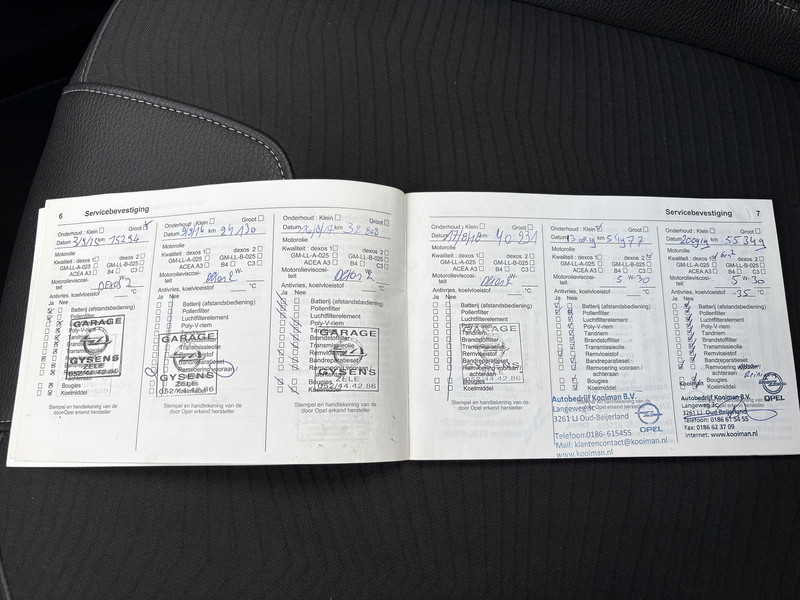 6 Servicebevestiging
Onderhoud : Klein Groot
Datum 3/8/15 km 15294
Motorolie
Kwaliteit : dexos 1 dexos 2
GM-LL-A-025 GM-LL-B-025
ACEA A3 B4 C3
Motorolieviscosi-
teit Dexos 2
Antivries, koelvloeistof °C
Ja Nee
Batterij (afstandsbediening)
Pollenfilter
GARAGE
GYSENS
ZELE
052/44.42.86
Bougies
Koelmiddel
Stempel en handtekening van de
door Opel erkend hersteller
Onderhoud : Klein Groot
Datum km
Motorolie
Kwaliteit : dexos 1 dexos 2
GM-LL-A-025 GM-LL-B-025
ACEA A3 B4 C3
Motorolieviscosi- W-
teit
Antivries, koelvloeistof °C
Ja Nee
Batterij (afstandsbediening)
Pollenfilter
Luchtfilterelement
Poly-V-riem
GARAGE
Transmissieolie
GYSENS
ZELE
052/44.42.86
Bougies
Koelmiddel
Stempel en handtekening van de
door Opel erkend hersteller
Onderhoud : Klein Groot
Datum km
Motorolie
Kwaliteit : dexos 1 dexos 2
GM-LL-A-025 GM-LL-B-025
ACEA A3 B4 C3
Motorolieviscosi- W-
teit Dexos 2
Antivries, koelvloeistof °C
Ja Nee
Batterij (afstandsbediening)
Pollenfilter
Luchtfilterelement
Poly-V-riem
GARAGE
Transmissieolie
Remvloeistof
Bandreparatieset
GYSENS
ZELE
Bougies
Koelmiddel
Stempel en handtekening van de
door Opel erkend hersteller
Servicebevestiging 7
Onderhoud : Klein Groot
Datum 17/8/18 km 40931
Motorolie
Kwaliteit : dexos 1 dexos 2
GM-LL-A-025 GM-LL-B-025
ACEA A3 B4 C3
Motorolieviscosi- W-
teit
Antivries, koelvloeistof °C
Ja Nee
Batterij (afstandsbediening)
Pollenfilter
Luchtfilterelement
Bougies
Koelmiddel
Stempel en handtekening van de
door Opel erkend hersteller
Onderhoud : Klein Groot
Datum km 54977
Motorolie
Kwaliteit : dexos 1 dexos 2
GM-LL-A-025 GM-LL-B-025
ACEA A3 B4 C3
Motorolieviscosi-
teit 5 W-30
Antivries, koelvloeistof °C
Ja Nee
Batterij (afstandsbediening)
Pollenfilter
Luchtfilterelement
Poly-V-riem
Tandriem
Brandstoffilter
Transmissieolie
Remvloeistof
Bandreparatieset
Remvoering vooraan/
achteraan
Bougies
Koelmiddel
Autobedrijf Kooiman B.V.
Langeweg 3c
3261 LJ Oud-Beijerland
OPEL
Telefoon:0186-615455
Mail: klantencontact@kooiman.nl
www.kooiman.nl
Onderhoud : Klein Groot
Datum km 55349
Motorolie
Kwaliteit : dexos 1
GM-LL-A-025 GM-LL-B-025
ACEA A3 B4 C3
Motorolieviscosi-
teit 5 W-30
Antivries, koelvloeistof -35 °C
Ja Nee
Batterij (afstandsbediening)
Pollenfilter
Luchtfilterelement
Poly-V-riem
Tandriem
Brandstoffilter
Transmissieolie
Remvloeistof
Bandreparatieset
Remvoering
achteraan
Bougies
Koelmiddel
Autobedrijf Kooiman B.V.
Langeweg 3C
3261 LJ Oud Beijerland
OPEL
Telefoon: 0186 61 54 55
Fax: 0186 62 37 09
Internet: www.kooiman.nl